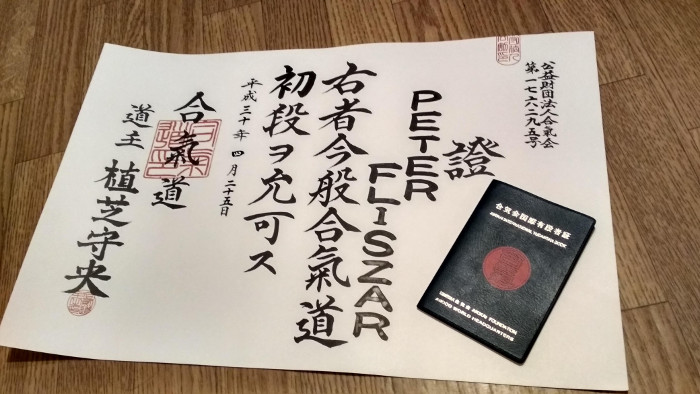 公益財団法人合氣会
第一七六二九五号
證
PETER
FLISZAR
右者今般合氣道
初段ヲ允可ス
平成三十年 四月二十五日
合氣道
道主 植芝守央
合気会国際有段者証
AIKIKAI INTERNATIONAL YUDANSHA BOOK
AIKIKAI FOUNDATION
AIKIDO WORLD HEADQUARTERS